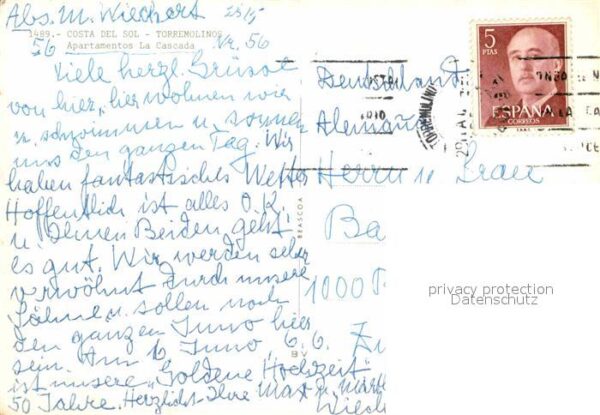 Abs. M. Wiechert 28/5
1489.- COSTA DEL SOL - TORREMOLINOS
56 Apartamentos La Cascada Nr. 56
Viele herzl. Grüße
von hier, hier wohnen wir
u. schwimmen u. sonnen
uns den ganzen Tag. Wir
haben fantastisches Wetter
Hoffentlich ist alles O.K.
u. Ihnen Beiden geht
es gut. Wir werden sehr
verwöhnt durch unsere
Söhne u. sollen noch
den ganzen Juno hier
sein. Am 6 Juno 6.6.
ist unsere „Goldene Hochzeit"
50 Jahre. Herzlichst Ihre Max u.
Wiech
5
PTAS
ESPAÑA
CORREOS
Deutschland
Alemania
Herrn u Frau
Ba
1000
BEASCOA
B V
privacy protection
Datenschutz